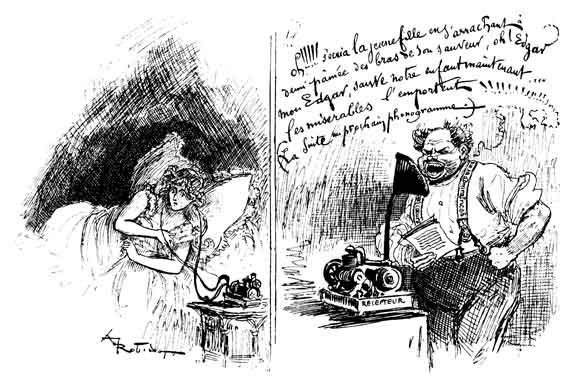 Oh !!!!!! s'écria la jeune fille en s'arrachant à
demi pâmée des bras de son sauveur, oh ! Edgar
mon Edgar, sauve notre enfant maintenant ...
les misérables l'emportent
(La Suite au prochain phonogramme)
RECEPTEUR
A. Robida